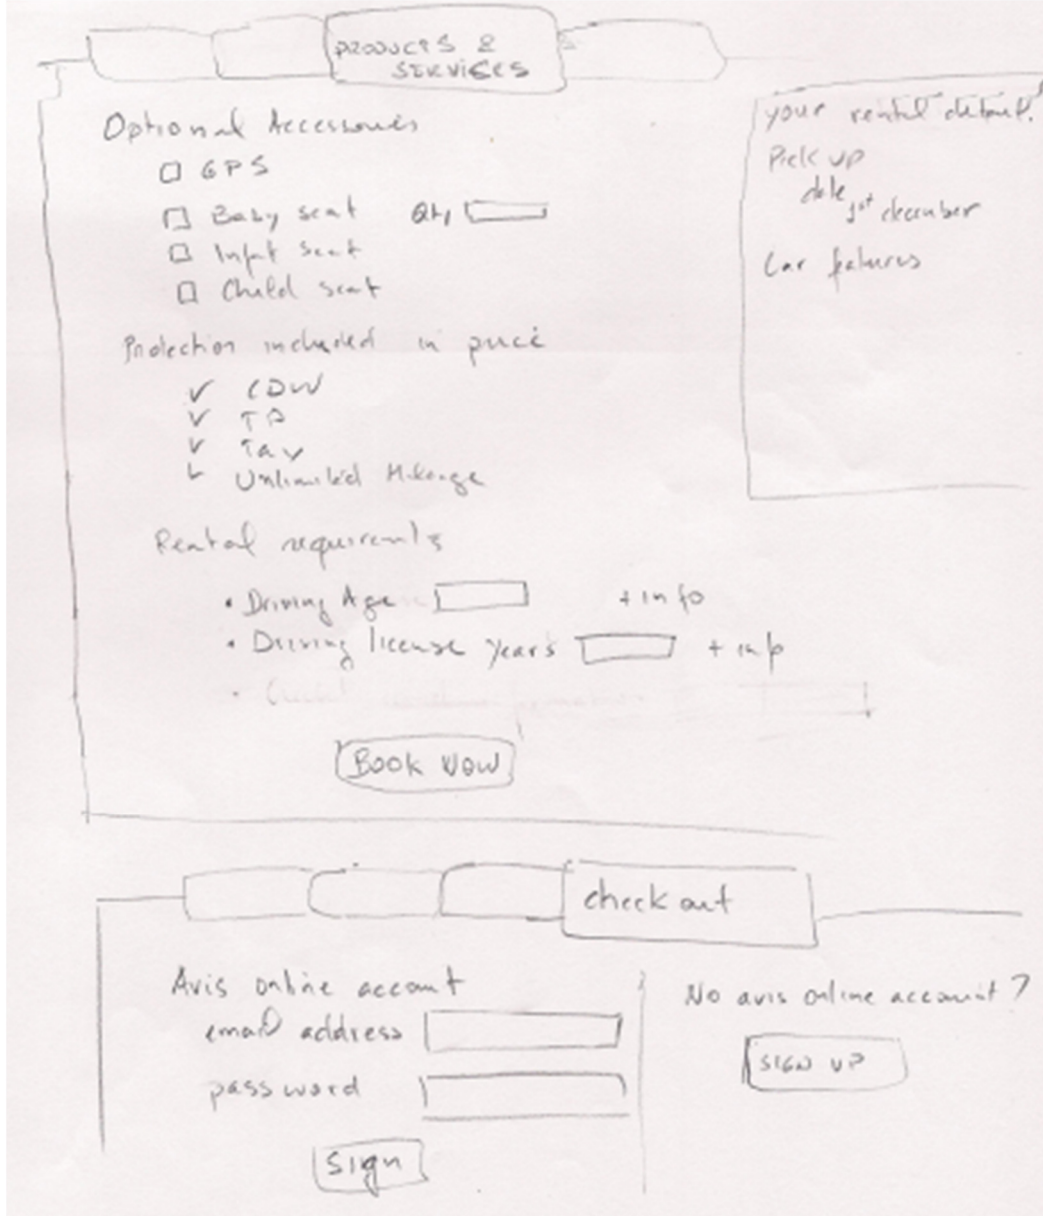 PRODUCTS &
SERVICES
Optional Accessories
GPS
Baby seat Qty
Infat Seat
Child seat
Protection included in price
✓ CDW
✓ TP
✓ Tax
Unlimited Mileage
Rental requirements
• Driving Age + info
• Driving license years + info
•
BOOK NOW
your rental detail.
Pick up
date
1st december
Car features
check out
Avis online account
email address
password
Sign
No avis online account?
SIGN UP